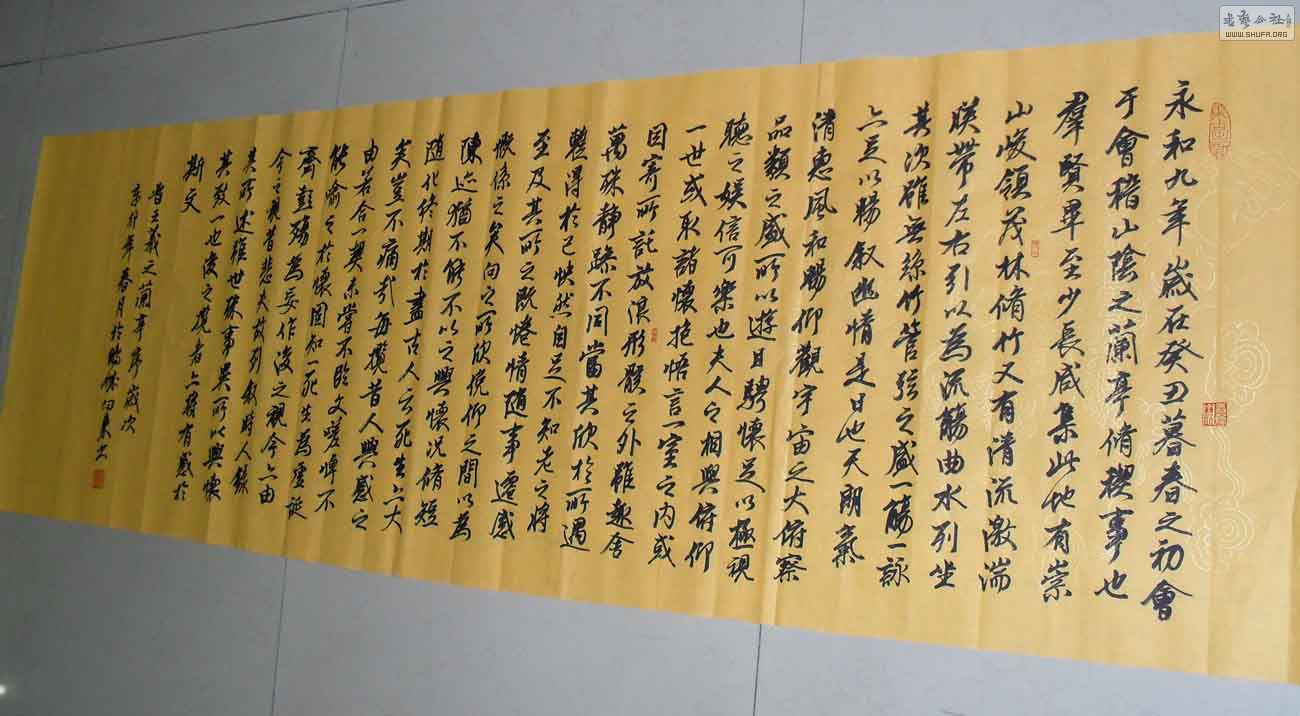 永和九年歲在癸丑暮春之初會
于會稽山陰之蘭亭脩禊事也
羣賢畢至少長咸集此地有崇
山峻領茂林脩竹又有清流激湍
暎帶左右引以為流觴曲水列坐
其次雖無絲竹管弦之盛一觴一詠
亦足以暢叙幽情是日也天朗氣
清惠風和暢仰觀宇宙之大俯察
品類之盛所以遊目騁懷足以極視
聽之娛信可樂也夫人之相與俯仰
一世或取諸懷抱悟言一室之內或
因寄所託放浪形骸之外雖趣舍
萬殊靜躁不同當其欣於所遇
蹔得於己快然自足不知老之將
至及其所之既惓情隨事遷感
慨係之矣向之所欣俛仰之間以為
陳迹猶不能不以之興懷況脩短
隨化終期於盡古人云死生亦大
矣豈不痛哉每攬昔人興感之
由若合一契未嘗不臨文嗟悼不
能喻之於懷固知一死生為虛誕
齊彭殤為妄作後之視今亦由
今之視昔悲夫故列叙時人錄
其所述雖世殊事異所以興懷
其致一也後之攬者亦將有感於
斯文
晋王羲之蘭亭序歲次
辛卯年春月於向東書
WWW.SHUFA.ORG